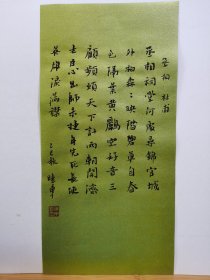 蜀相 杜甫
丞相祠堂何處尋錦官城
外柏森〻映階碧草自春
色隔葉黃鸝空好音三
顧頻煩天下計兩朝開濟
老臣心出師未捷身先死長使
英雄淚滿襟